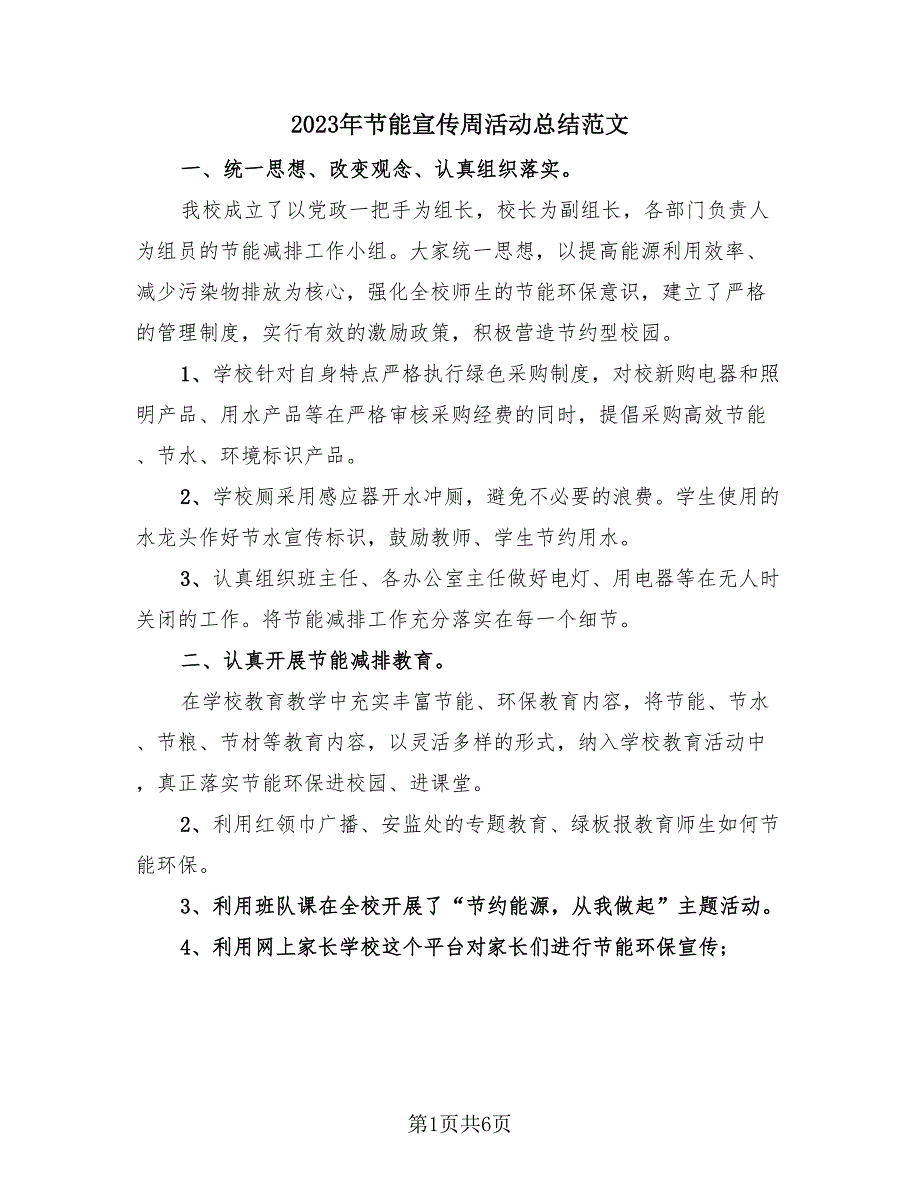 2023年节能宣传周活动总结范文
一、统一思想、改变观念、认真组织落实。
我校成立了以党政一把手为组长，校长为副组长，各部门负责人
为组员的节能减排工作小组。大家统一思想，以提高能源利用效率、
减少污染物排放为核心，强化全校师生的节能环保意识，建立了严格
的管理制度，实行有效的激励政策，积极营造节约型校园。
1、学校针对自身特点严格执行绿色采购制度，对校新购电器和照
明产品、用水产品等在严格审核采购经费的同时，提倡采购高效节能
、节水、环境标识产品。
2、学校厕采用感应器开水冲厕，避免不必要的浪费。学生使用的
水龙头作好节水宣传标识，鼓励教师、学生节约用水。
3、认真组织班主任、各办公室主任做好电灯、用电器等在无人时
关闭的工作。将节能减排工作充分落实在每一个细节。
二、认真开展节能减排教育。
在学校教育教学中充实丰富节能、环保教育内容，将节能、节水
、节粮、节材等教育内容，以灵活多样的形式，纳入学校教育活动中
，真正落实节能环保进校园、进课堂。
2、利用红领巾广播、安监处的专题教育、绿板报教育师生如何节
能环保。
3、利用班队课在全校开展了“节约能源，从我做起”主题活动。
4、利用网上家长学校这个平台对家长们进行节能环保宣传；
第1页共6页